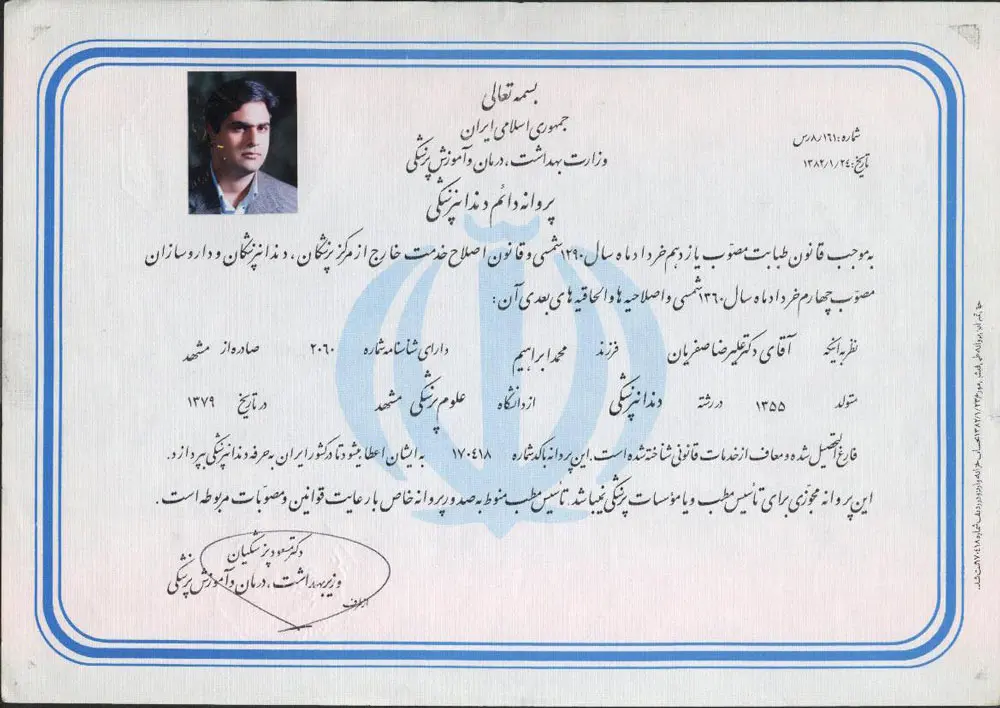 بسمه تعالی
جمهوری اسلامی ایران
وزارت بهداشت، درمان و آموزش پزشکی
شماره: ۸/۱۶۱/رس
تاریخ: ۱۳۸۲/۱/۲۴
پروانه دائم دندانپزشکی
به موجب قانون طبابت مصوّب یازدهم خرداد ماه سال ۱۲۹۰ شمسی و قانون اصلاح خدمت خارج از مرکز پزشکان، دندانپزشکان و داروسازان
مصوّب چهارم خرداد ماه سال ۱۳۶۰ شمسی و اصلاحیه ها و الحاقیه های بعدی آن:
نظر به اینکه آقای دکتر علیرضا صفریان فرزند محمد ابراهیم دارای شناسنامه شماره ۲۰۶۰ صادره از مشهد
متولد ۱۳۵۵ در رشته دندانپزشکی از دانشگاه علوم پزشکی مشهد در تاریخ ۱۳۷۹
فارغ التحصیل شده و معاف از خدمات قانونی شناخته شده است. این پروانه با کد شماره ۱۷۰۴۱۸ به ایشان اعطا میشود تا در کشور ایران به حرفه دندانپزشکی بپردازد.
این پروانه مجوّزی برای تأسیس مطب و یا مؤسسات پزشکی نمیباشد. تأسیس مطب منوط به صدور پروانه خاص با رعایت قوانین و مصوبات مربوطه است.
دکتر مسعود پزشکیان
وزیر بهداشت، درمان و آموزش پزشکی
از طرف